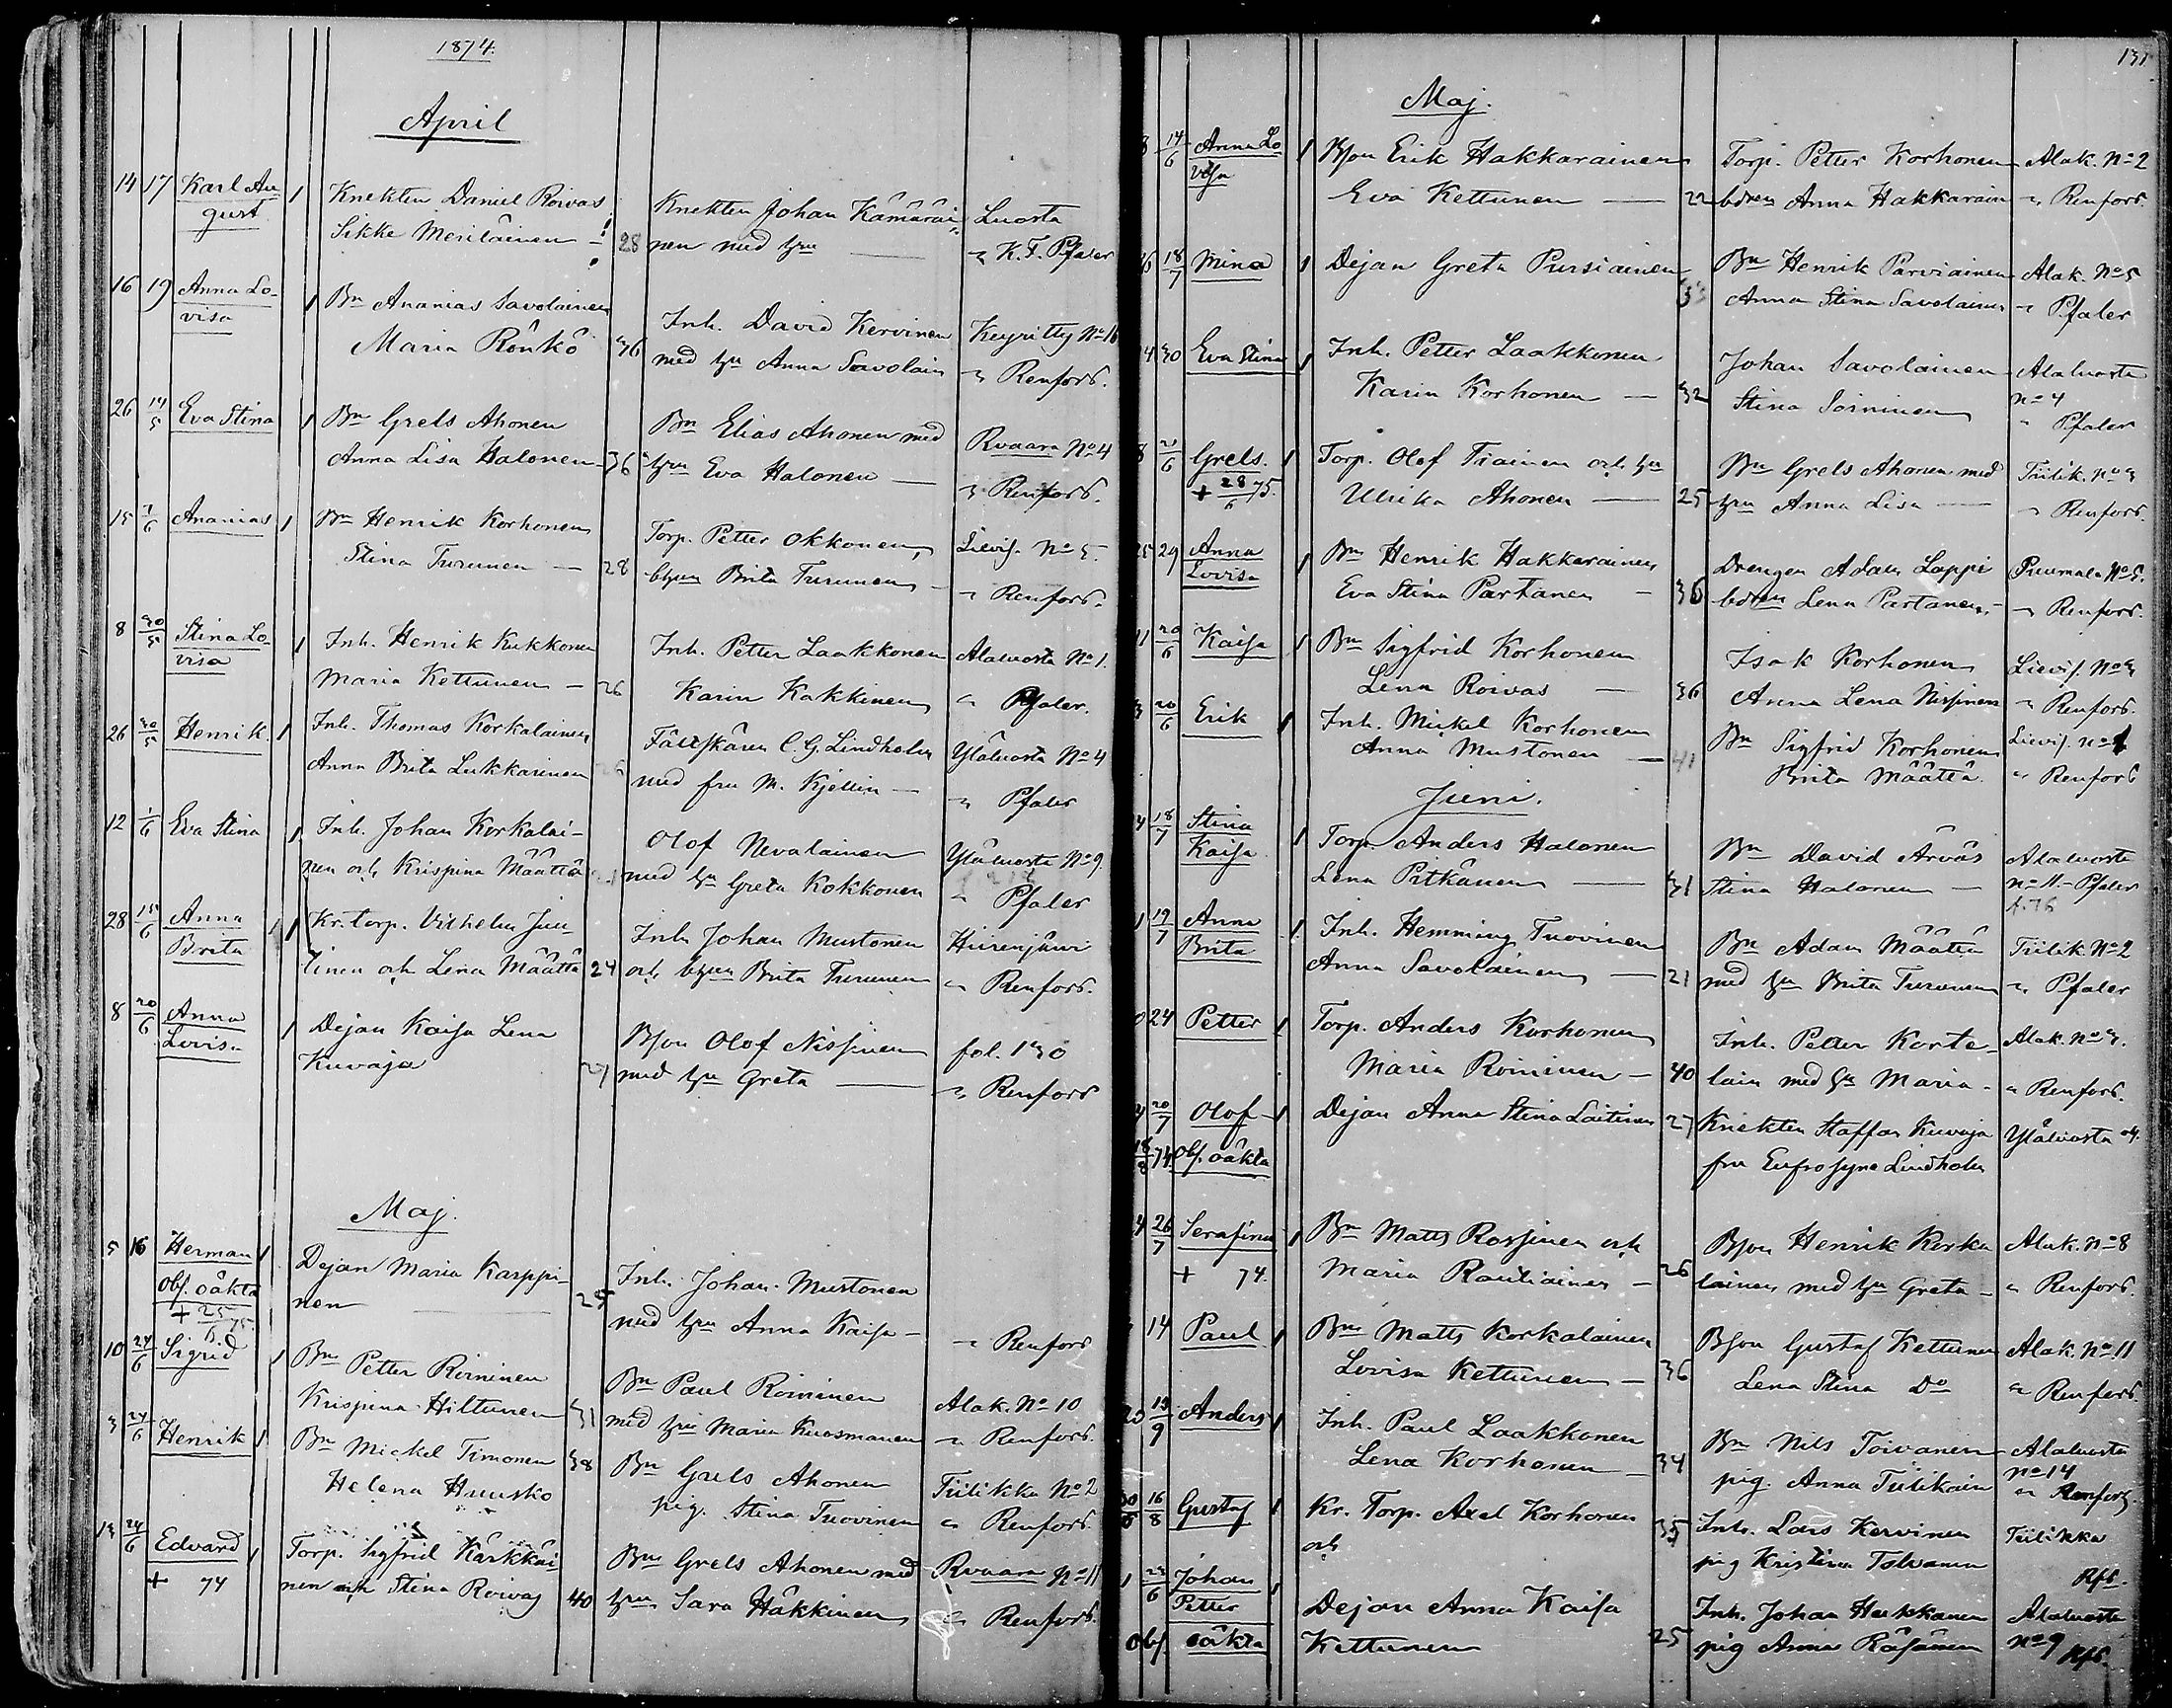 1874.
April
14 17 Karl Au-
gust 1 Knekten Daniel Roivas
Sikke Meriläinen — 28
Knekten Johan Kämäräi-
nen med hu —
Luosta
K. F. Pfaler
16 19 Anna Lo-
visa 1 Bn Ananias Savolainen
Maria Rönkö 36
Inh. David Kervinen
med hu Anna Savolain
Keyritty No 16
Renfors.
26 14/5 Eva Stina 1 Bn Grels Ahonen
Anna Lisa Halonen 36
Bn Elias Ahonen med
hu Eva Halonen —
Rvaara No 4
Renfors.
15 7/6 Ananias 1 Bn Henrik Korhonen
Stina Turunen — 28
Torp. Petter Okkonen,
Brita Turunen
Lievis. No 5.
Renfors.
8 30/5 Stina Lo-
visa 1 Inh. Henrik Kukkonen
Maria Kettunen — 26
Inh. Petter Laakkonen
Karin Kakkinen
Alaluosta No 1.
Pfaler.
26 30/5 Henrik. 1 Inh. Thomas Korkalainen
Anna Brita Lukkarinen
Fältskären C. G. Lindholm
med fru M. Kjellin —
Yläluosta No 4
Pfaler
12 1/6 Eva Stina 1 Inh. Johan Korkalai-
nen och Krispina Määttä
Olof Nevalainen
med hu Greta Kokkonen
Yläluosta No 9.
Pfaler
28 15/6 Anna
Brita 1 Kr. torp. Vilhelm Juu-
tinen och Lena Määttä 24
Inh Johan Mustonen
och Brita Turunen
Hiirenjärvi
Renfors.
8 20/6 Anna
Lovisa 1 Dejan Kaisa Lena
Kuvaja 27
Bson Olof Nissinen
med hu Greta —
fol. 130
Renfors
Maj.
5 16 Herman 1
Obs. oäkta
+ 25/6 75.
Dejan Maria Karppi-
nen 25
Inh. Johan Mustonen
med hu Anna Kaisa —
Renfors
10 24/6 Sigrid 1 Bn Petter Roininen
Krispina Hiltunen 31
Bn Paul Roininen
med hu Maria Kuosmanen
Alak. No 10
Renfors.
3 24/6 Henrik 1 Bn Mickel Timonen 38
Helena Huusko
Bn Grels Ahonen
pig. Stina Tuovinen
Tiilikka No 2
Renfors.
13 24/6 Edvard 1
+ 74
Torp. Sigfrid Kärkkäi-
nen och Stina Roivas 40
Bn Grels Ahonen med
hu Sara Häkkinen
Rvaara No 11
Renfors.
131
Maj.
8 14/6 Anna Lo-
visa 1 Bson Erik Hakkarainen
Eva Kettunen — 22
Torp. Petter Korhonen
Anna Hakkarain
Alak. No 2
Renfors.
18/7 Mina 1 Dejan Greta Pursiainen 33
Bn Henrik Parviainen
Anna Stina Savolainen
Alak. No 5
Pfaler
30 Eva Stina 1 Inh. Petter Laakkonen
Karin Korhonen — 32
Johan Savolainen
Stina Soininen
Alaluosta
No 4
Pfaler
8 21/6 Grels. 1
+ 28/6 75.
Torp. Olof Tiainen och hu
Ulrika Ahonen — 25
Bn Grels Ahonen med
hu Anna Lisa —
Tiilik. No 3
Renfors.
25 29 Anna
Lovisa 1 Bn Henrik Hakkarainen
Eva Stina Partanen — 36
Drengen Adam Lappi
Lena Partanen
Puumala No 5.
Renfors.
20/6 Kaisa 1 Bn Sigfrid Korhonen
Lena Roivas — 36
Isak Korhonen
Anna Lena Nissinen
Lievis. No 3
Renfors.
20/6 Erik 1 Inh. Mickel Korhonen
Anna Mustonen — 41
Bn Sigfrid Korhonen
Brita Määttä
Lievis. No 1
Renfors
Juni.
18/7 Stina
Kaisa 1 Torp Anders Halonen
Lena Pitkänen — 31
Bn David Arväs
Stina Halonen —
Alaluosta
No 11. Pfaler
f. 76
19/7 Anna
Brita 1 Inh. Hemming Tuovinen
Anna Savolainen — 21
Bn Adam Määttä
med hu Brita Turunen
Tiilik. No 2
Pfaler
24 Petter 1 Torp. Anders Korhonen
Maria Roininen — 40
Inh. Petter Korte-
lain med hu Maria -
Alak. No 3.
Renfors.
20/7 Olof 1 Dejan Anna Stina Laitinen 27
18/8 74. Obs. oäkta
Knekten Staffan Kuvaja
fru Eufrosyne Lindholm
Yläluosta 4.
26/7 Serafina 1
+ 74.
Bn Matts Rossinen och
Maria Rautiainen — 26
Bson Henrik Korka
lainen med hu Greta —
Alak. No 8
Renfors.
14 Paul 1 Bn Matts Korkalainen
Lovisa Kettunen — 36
Bson Gustaf Kettunen
Lena Stina Do
Alak. No 11
Renfors.
13/9 Anders 1 Inh. Paul Laakkonen
Lena Korhonen — 34
Bn Nils Toivanen
pig. Anna Tiilikain
Alaluosta
No 14
Renfors.
16/8 Gustaf 1 Kr. Torp. Axel Korhonen 35
och
Inh. Lars Kervinen
pig Kristina Tolvanen
Tiilikka
Rfs.
1 23/6 Johan
Petter 1
Obs. oäkta
Dejan Anna Kaisa
Kettunen 25
Inh. Johan Heikkanen
pig Anna Räsänen
Alaluosta
No 9 Rfs.